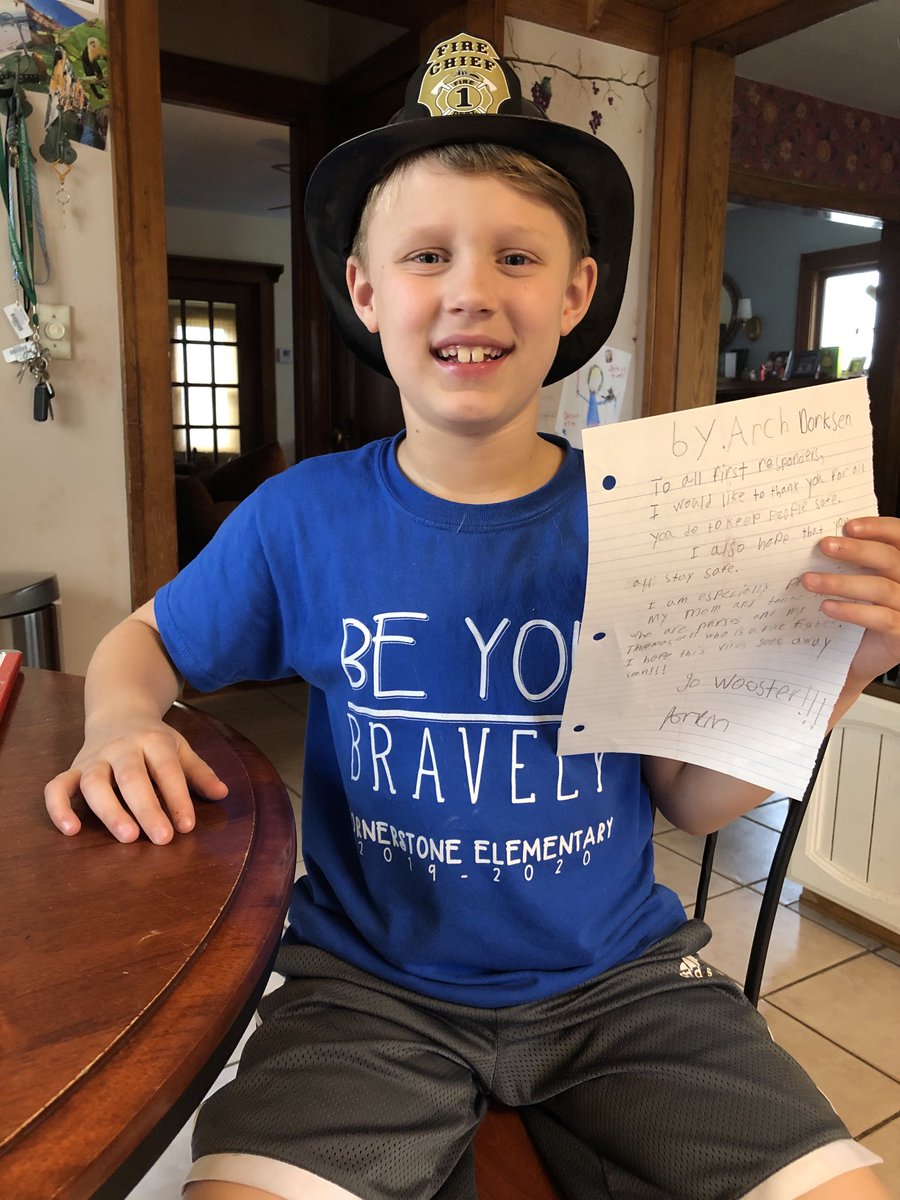 FIRE
CHIEF
FIRE
1
by. Arch Dorksen
To all first responders,
I would like to thank you for all
you do to keep people safe.
I also hope that
all stay safe.
I am especially
my Mom and
who are nurses and my
who is a fire fister.
I hope this vires goes away
soon!!!
Go Wooster!!!
BE YOU
BRAVELY
ORNERSTONE ELEMENTARY
2019-2020
adidas